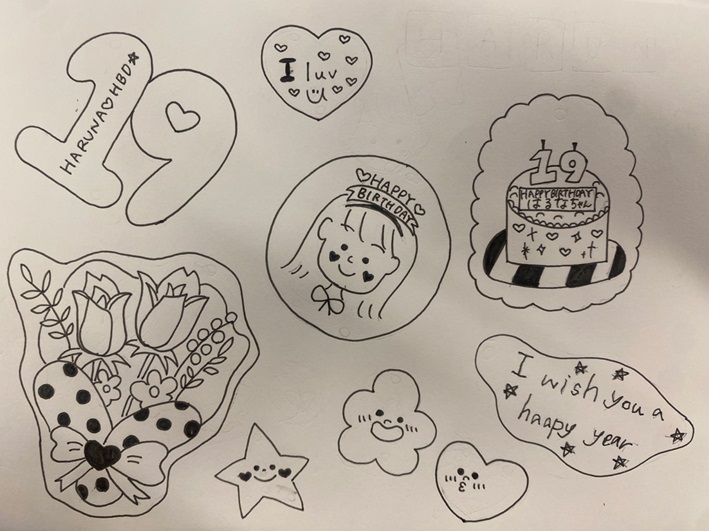 19
HARUNA♡HBD☆
I luv
HAPPY
BIRTHDAY
19
HAPPY BIRTHDAY
はるなちゃん
I wish you a
haapy year